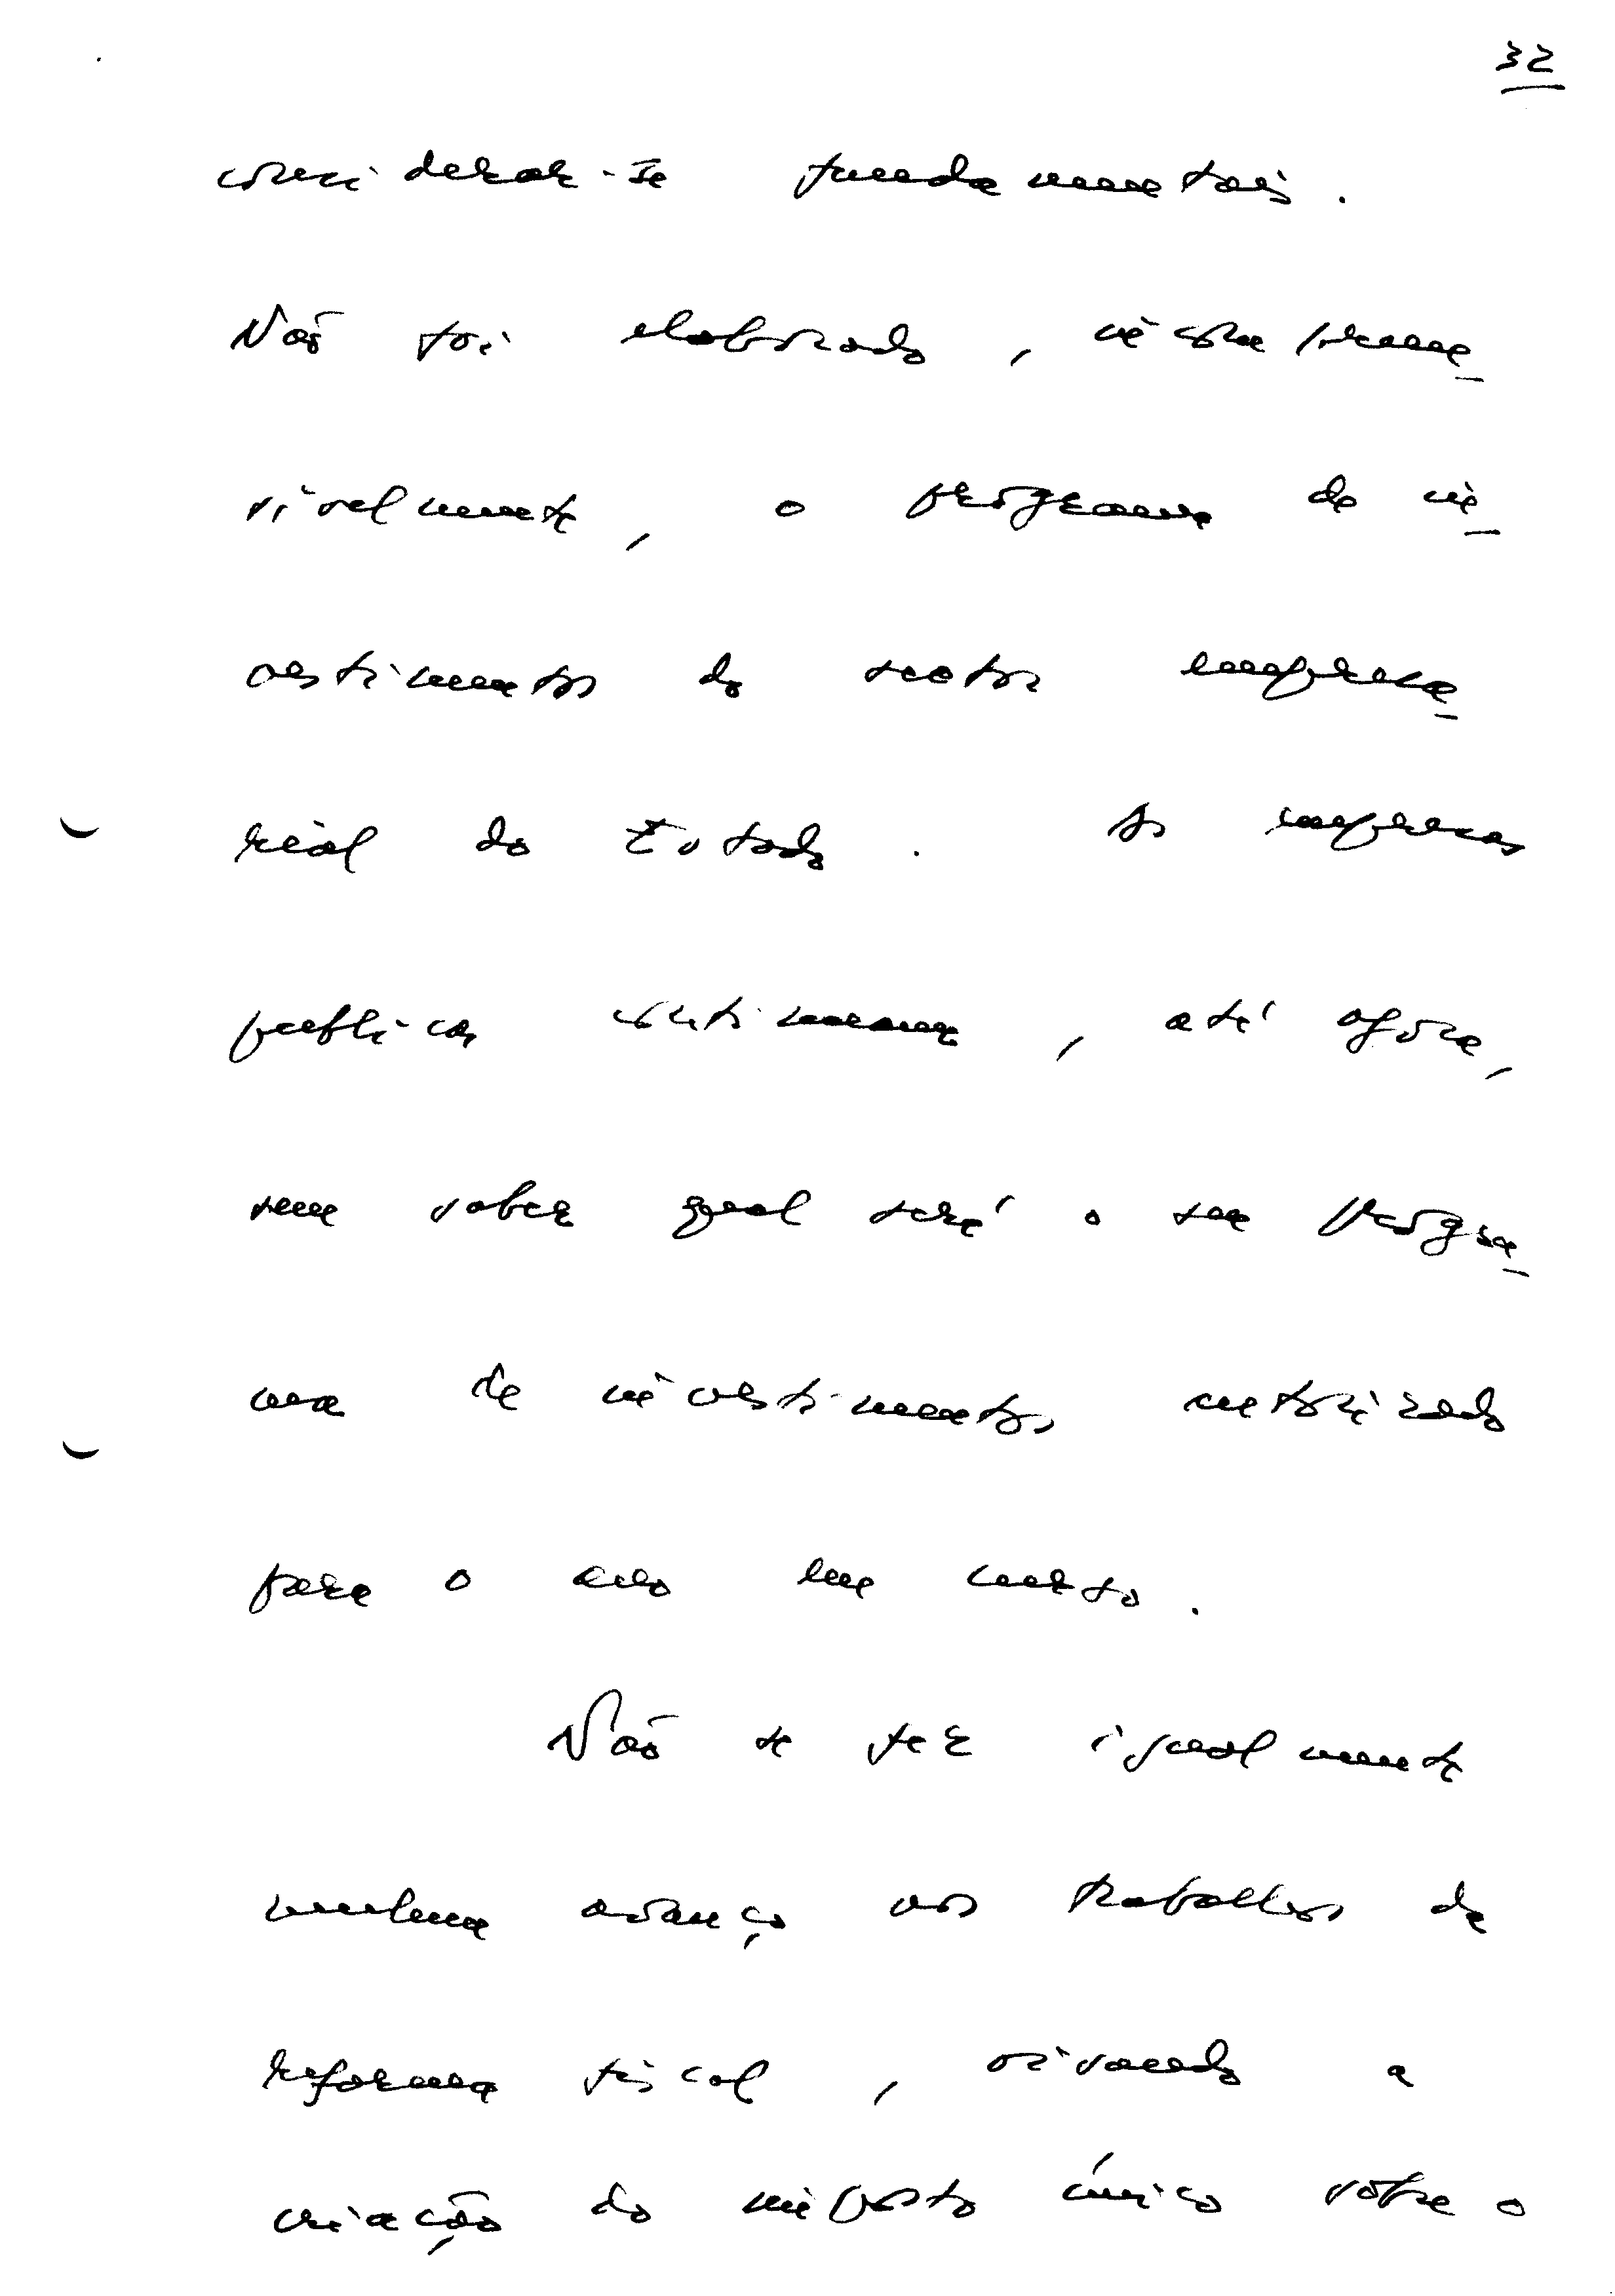 32
considerar-se fundamentais.
Não foi elaborado, incompreen
sivelmente, o programa de in
vestimentos do sector empresa
rial do Estado. As empresas
públicas continuam, até agora,
sem saber qual será o seu progra
ma de investimentos autorizado
para o ano em curso.
Não se fez igualmente
nenhum avanço nos trabalhos da
reforma fiscal, visando a
criação do imposto único sobre o